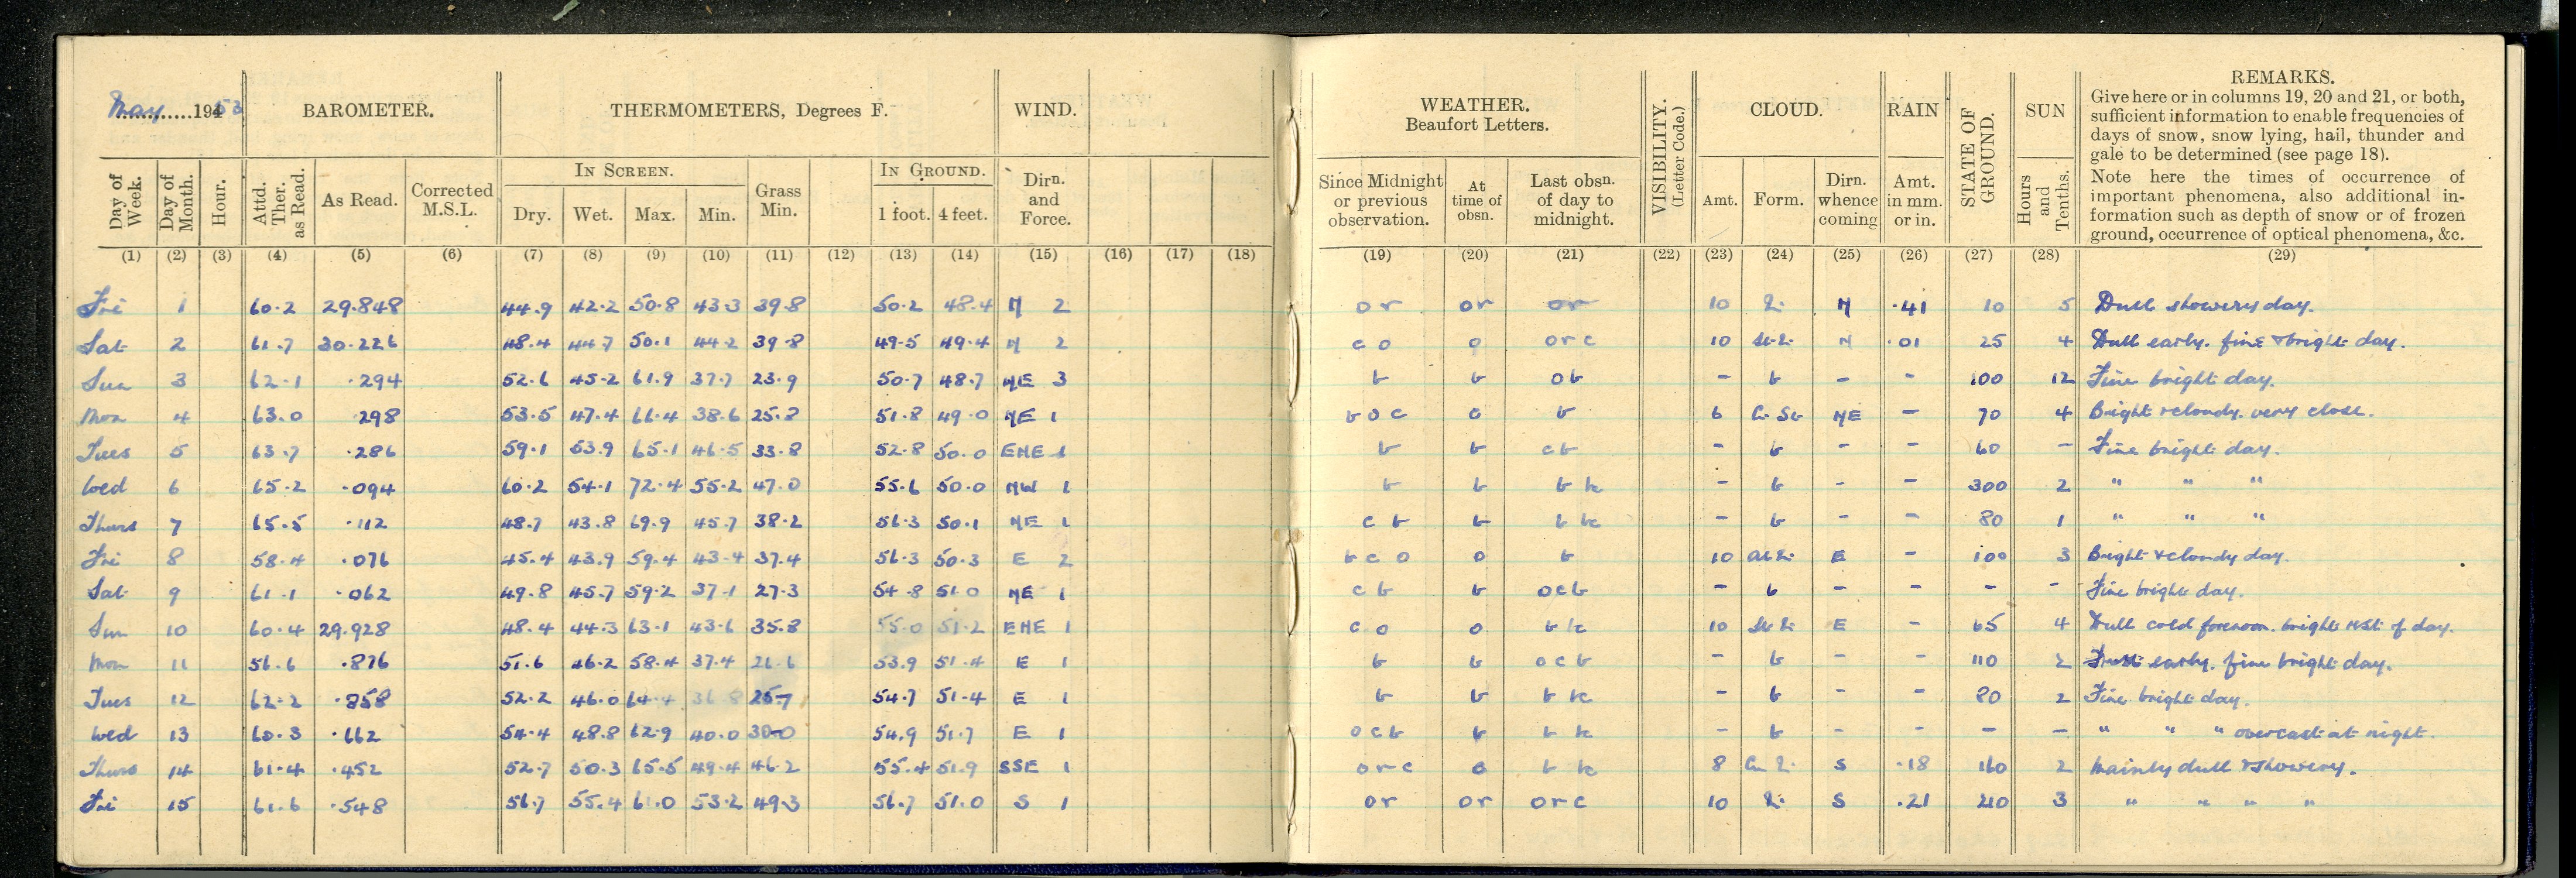 May 1953
BAROMETER.
THERMOMETERS, Degrees F.
WIND.
WEATHER.
Beaufort Letters.
VISIBILITY.
(Letter Code.)
CLOUD.
RAIN
STATE OF GROUND.
SUN
REMARKS.
Give here or in columns 19, 20 and 21, or both,
sufficient information to enable frequencies of
days of snow, snow lying, hail, thunder and
gale to be determined (see page 18).
Note here the times of occurrence of
important phenomena, also additional in-
formation such as depth of snow or of frozen
ground, occurrence of optical phenomena, &c.
Day of Week.
Day of Month.
Hour.
Attd. Ther. as Read.
As Read.
Corrected M.S.L.
IN SCREEN.
Dry. Wet. Max. Min.
Grass Min.
IN GROUND.
1 foot. 4 feet.
Dirn. and Force.
Since Midnight or previous observation.
At time of obsn.
Last obsn. of day to midnight.
Amt. Form.
Dirn. whence coming
Amt. in mm. or in.
Hours and Tenths.
(1) (2) (3) (4) (5) (6) (7) (8) (9) (10) (11) (12) (13) (14) (15) (16) (17) (18) (19) (20) (21) (22) (23) (24) (25) (26) (27) (28) (29)
Fri 1 60.2 29.848 44.9 42.2 50.8 43.3 39.8 50.2 48.4 N 2 or or or 10 N .41 10 5 Dull showery day.
Sat 2 61.7 30.226 48.4 44.7 50.1 44.2 39.8 49.5 49.4 N 2 c o o orc 10 N .01 25 4 Dull early. fine & bright day.
Sun 3 62.1 .294 52.6 45.2 61.9 37.7 23.9 50.7 48.7 NE 3 b b ob - b - - 100 12 Fine bright day.
Mon 4 63.0 .298 53.5 47.4 66.4 38.6 25.8 51.8 49.0 NE 1 b o c o b 6 NE - 70 4 Bright & cloudy. very close.
Tues 5 63.7 .286 59.1 53.9 65.1 46.5 33.8 52.8 50.0 ENE 1 b b cb - b - - 60 - Fine bright day.
Wed 6 65.2 .094 60.2 54.1 72.4 55.2 47.0 55.6 50.0 NW 1 b b b - b - - 300 2 " " "
Thurs 7 65.5 .112 48.7 43.8 69.9 45.7 38.2 56.3 50.1 NE 1 c b b b - b - - 80 1 " " "
Fri 8 58.4 .076 45.4 43.9 59.4 43.4 37.4 56.3 50.3 E 2 b c o o b 10 E - 100 3 Bright & cloudy day.
Sat 9 61.1 .062 49.8 45.7 59.2 37.1 27.3 54.8 51.0 NE 1 c b b ocb - b - - - - Fine bright day.
Sun 10 60.4 29.928 48.4 44.3 63.1 43.6 35.8 55.0 51.2 ENE 1 c o o b 10 E - 65 4 Dull cold forenoon. bright rest of day.
Mon 11 56.6 .876 51.6 46.2 58.4 37.4 26.6 53.9 51.4 E 1 b b ocb - b - - 110 2 early. fine bright day.
Tues 12 62.2 .858 52.2 46.0 64.4 36.8 25.7 54.7 51.4 E 1 b b b - b - - 80 2 Fine bright day.
Wed 13 60.3 .662 54.4 48.8 62.9 40.0 30.0 54.9 51.7 E 1 ocb b b - b - - - - " " " overcast at night.
Thurs 14 61.4 .452 52.7 50.3 65.5 49.4 46.2 55.4 51.9 SSE 1 orc o b 8 S .18 160 2 Mainly dull & showery.
Fri 15 61.6 .548 56.7 55.4 61.0 53.2 49.3 56.7 51.0 S 1 or or orc 10 S .21 210 3 " " " "